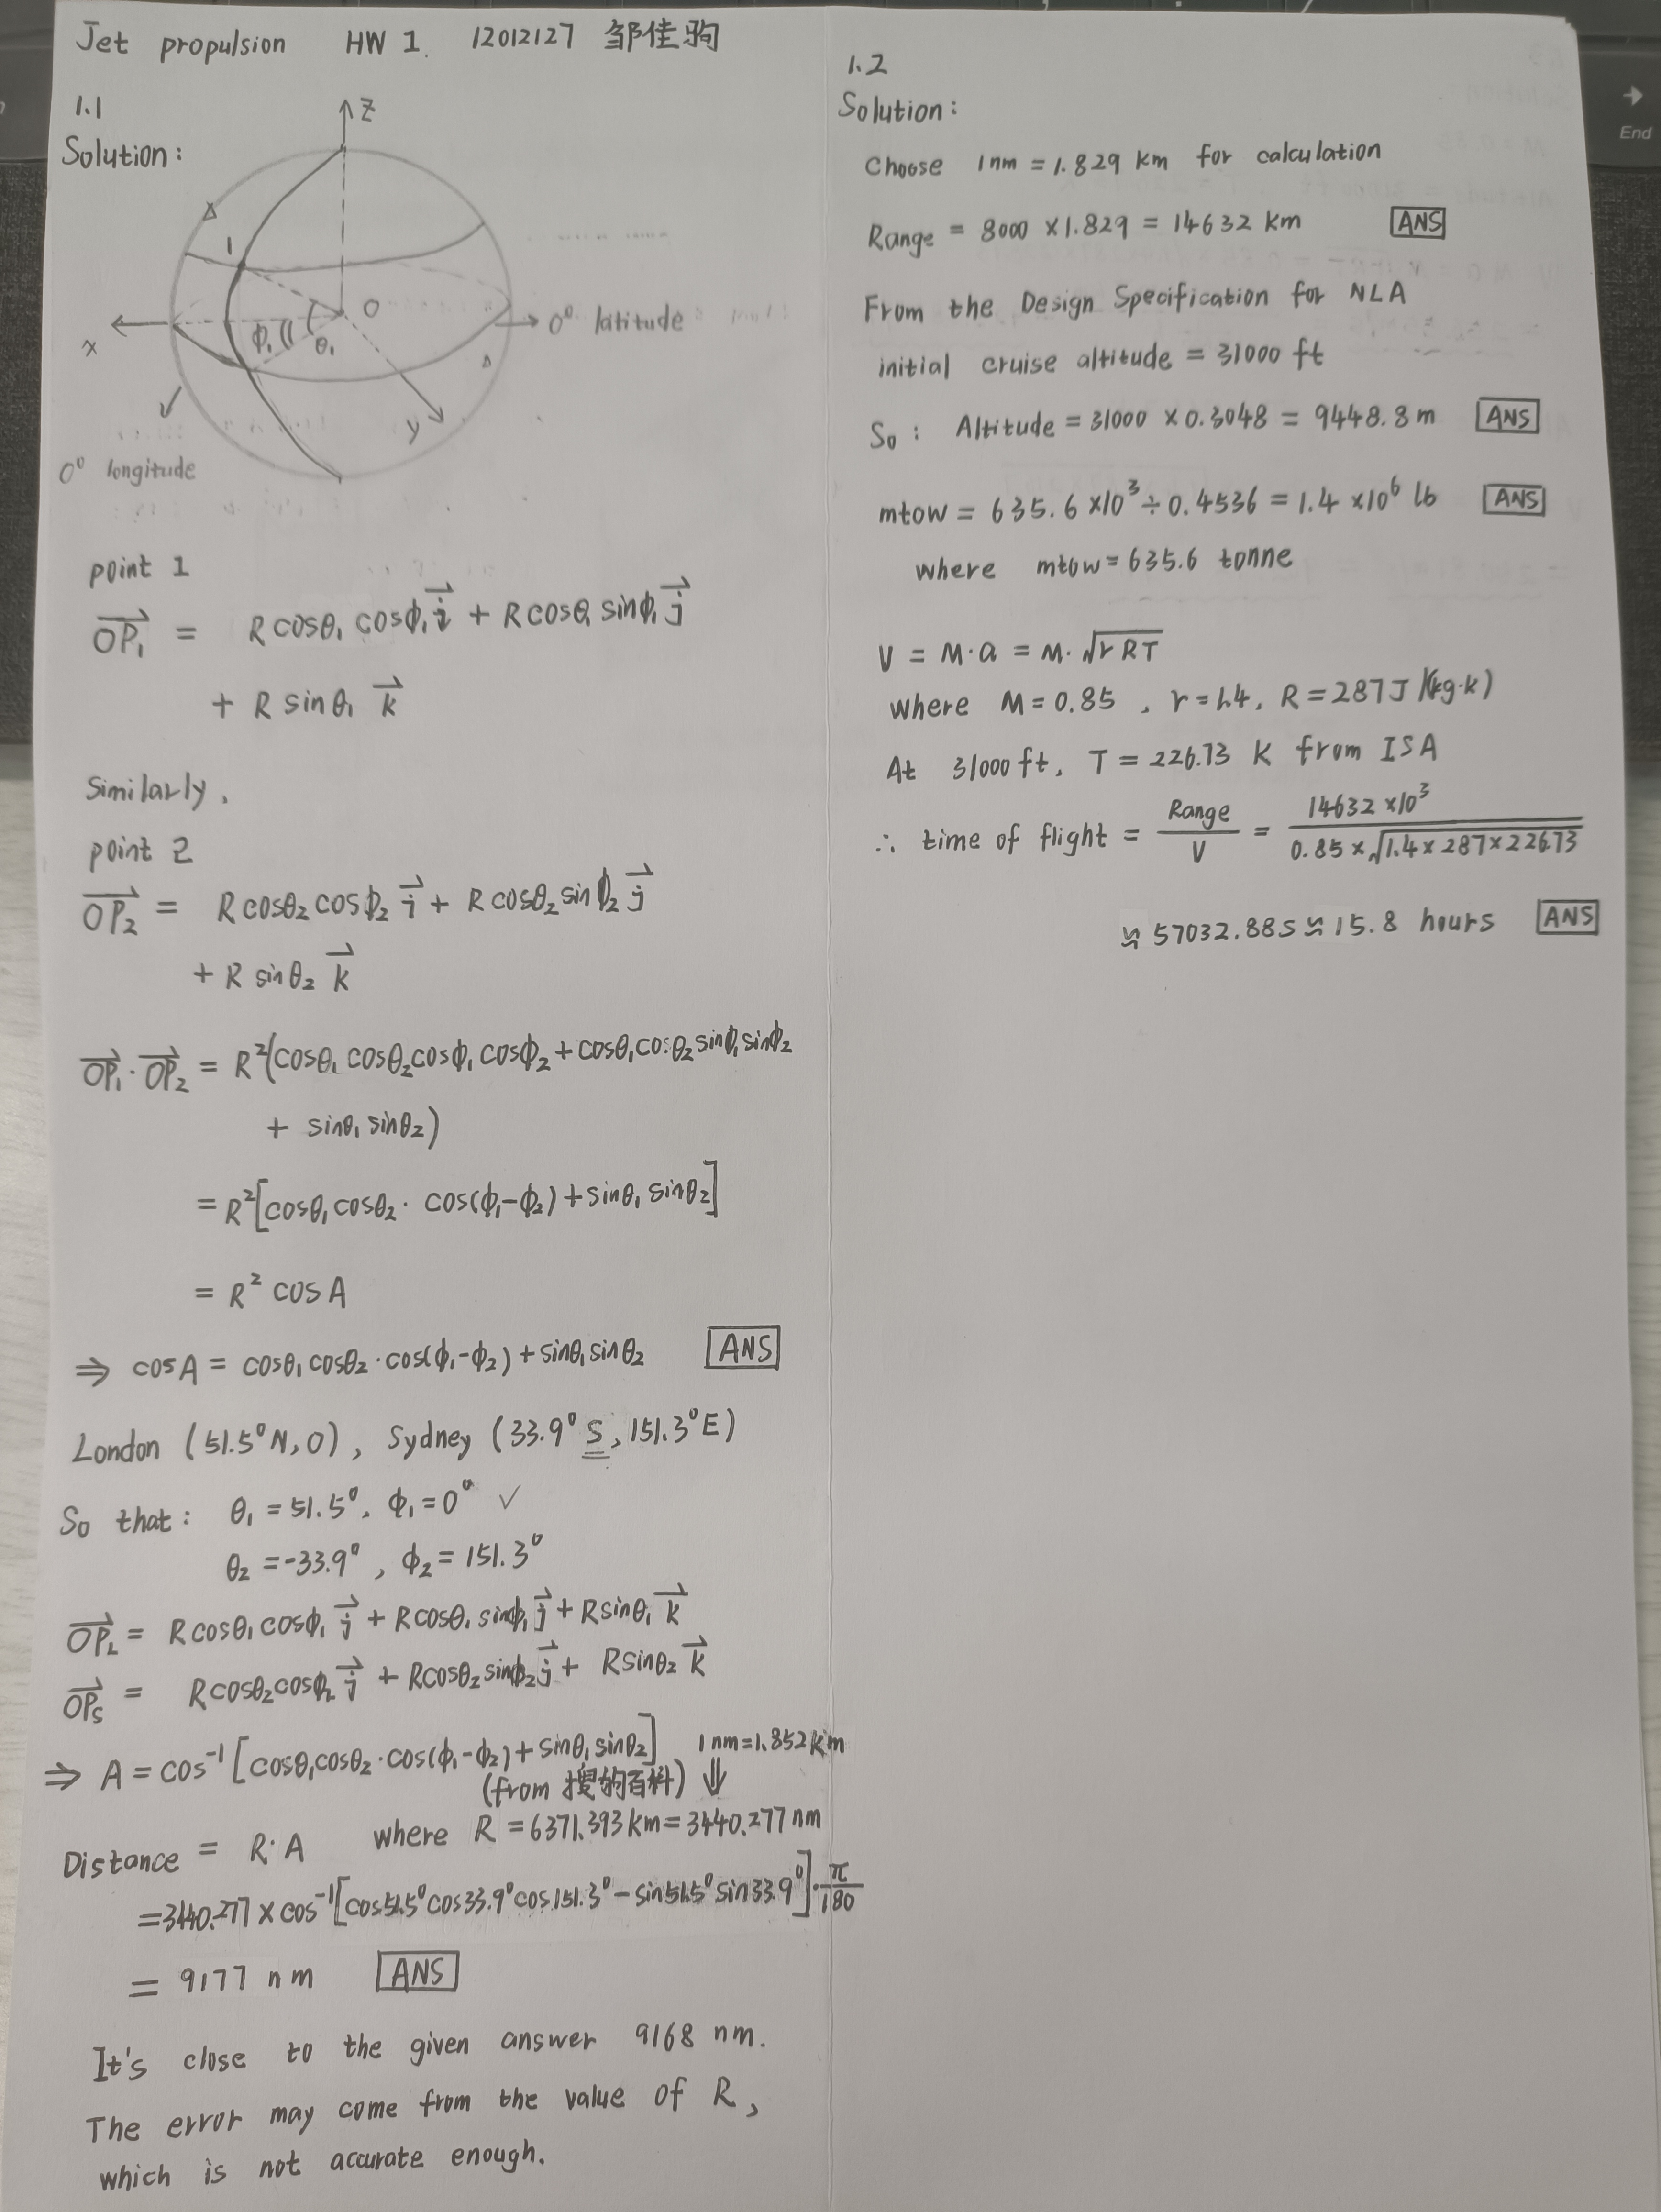 Jet propulsion HW 1. 12012127 邹佳驹
1.1
Solution:
Z
1
O
ϕ₁
θ₁
x
y
0° latitude
0° longitude
point 1
OP₁ = R cosθ₁ cosϕ₁ i + R cosθ₁ sinϕ₁ j
+ R sinθ₁ k
Similarly,
point 2
OP₂ = R cosθ₂ cosϕ₂ i + R cosθ₂ sinϕ₂ j
+ R sinθ₂ k
OP₁ · OP₂ = R²(cosθ₁ cosθ₂ cosϕ₁ cosϕ₂ + cosθ₁ cosθ₂ sinϕ₁ sinϕ₂
+ sinθ₁ sinθ₂)
= R²[cosθ₁ cosθ₂ · cos(ϕ₁-ϕ₂) + sinθ₁ sinθ₂]
= R² cos A
⇒ cosA = cosθ₁ cosθ₂ · cos(ϕ₁-ϕ₂) + sinθ₁ sinθ₂ ANS
London (51.5°N, 0), Sydney (33.9° S, 151.3°E)
So that: θ₁ = 51.5°, ϕ₁ = 0° ✓
θ₂ = -33.9°, ϕ₂ = 151.3°
OP_L = R cosθ₁ cosϕ₁ j + R cosθ₁ sinϕ₁ j + R sinθ₁ k
OP_S = R cosθ₂ cosϕ₂ j + R cosθ₂ sinϕ₂ j + R sinθ₂ k
⇒ A = cos⁻¹ [cosθ₁ cosθ₂ · cos(ϕ₁-ϕ₂) + sinθ₁ sinθ₂] 1 nm = 1.852 km
(from 搜狗百科) ⇓
Distance = R·A where R = 6371.393 km = 3440.277 nm
= 3440.277 × cos⁻¹[cos51.5° cos33.9° cos151.3° - sin51.5° sin33.9°] · π/180
= 9177 nm ANS
It's close to the given answer 9168 nm.
The error may come from the value of R,
which is not accurate enough.
1.2
Solution:
Choose 1 nm = 1.829 km for calculation
Range = 8000 × 1.829 = 14632 km ANS
From the Design Specification for NLA
initial cruise altitude = 31000 ft
So: Altitude = 31000 × 0.3048 = 9448.8 m ANS
mtow = 635.6 × 10³ ÷ 0.4536 = 1.4 × 10⁶ lb ANS
where mtow = 635.6 tonne
V = M·a = M·√rRT
where M = 0.85, r = 1.4, R = 287 J/(kg·k)
At 31000 ft, T = 226.73 K from ISA
∴ time of flight = Range/V = 14632 × 10³/0.85 × √1.4 × 287 × 226.73
≈ 57032.88s ≈ 15.8 hours ANS
End